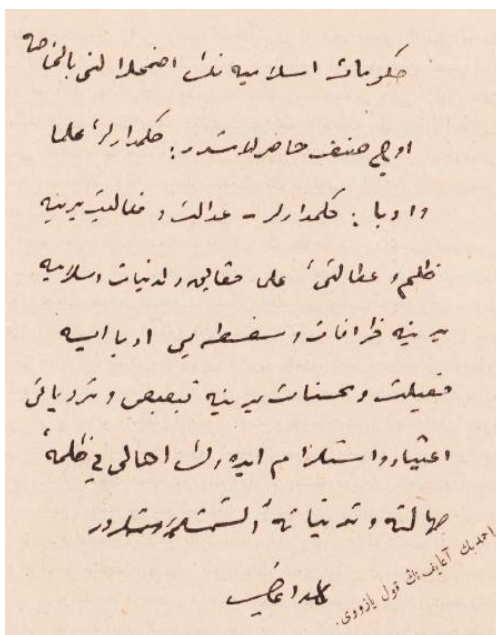 حكومات اسلاميه نك اضمحلالنی بالخاصه
اوچ صنف حاضرلامشدر: حكمدارلر، علما
و ادبا: حكمدارلر - عدالت و فعاليت يرينه
ظلم و عطالتی، علما حقايق و تدنيات اسلاميه
يرينه خرافات و سفسطه يی ادبا ايسه
فضيلت و محسنات يرينه تبصبص و
اعتياد و استلزام ايده رك اهالی يی ظلمه
جهالته و تدنياته آلشدرمشلردر
احمد
احمد بك آغايف نك قول يازووی.